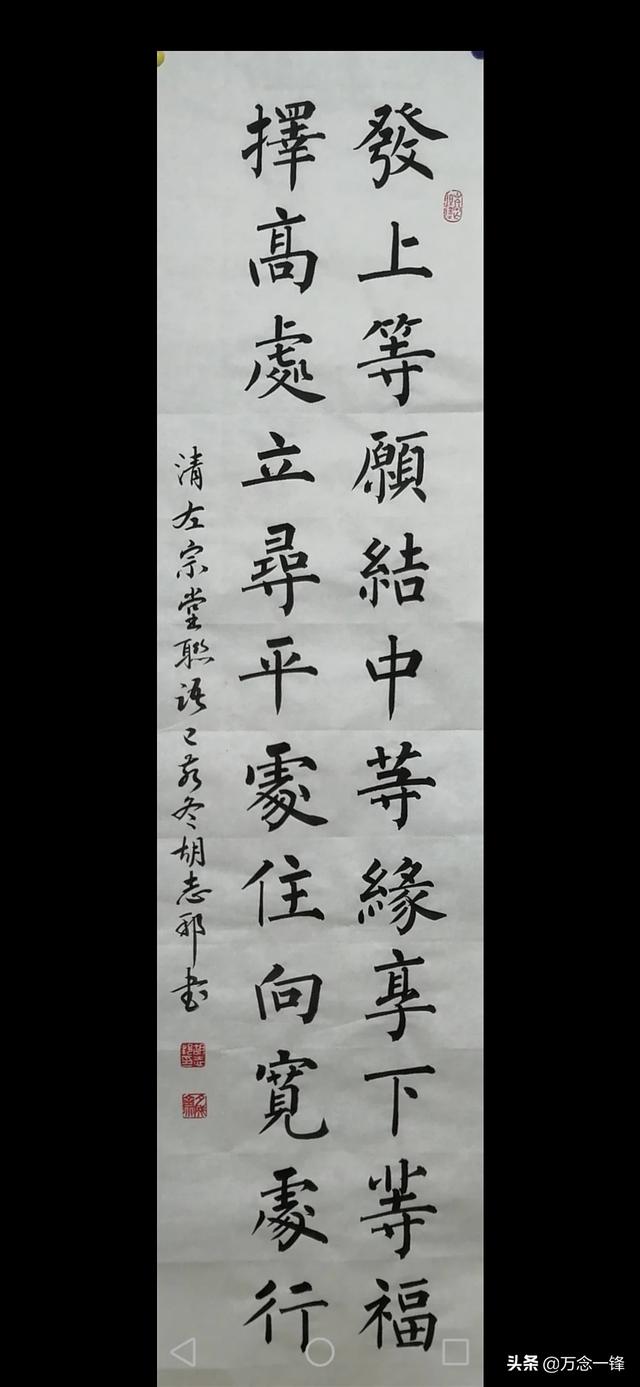 發上等願結中等緣享下等福
擇高處立尋平處住向寬處行
清左宗堂聯語己亥冬胡志邪书
头条 @万念一锋